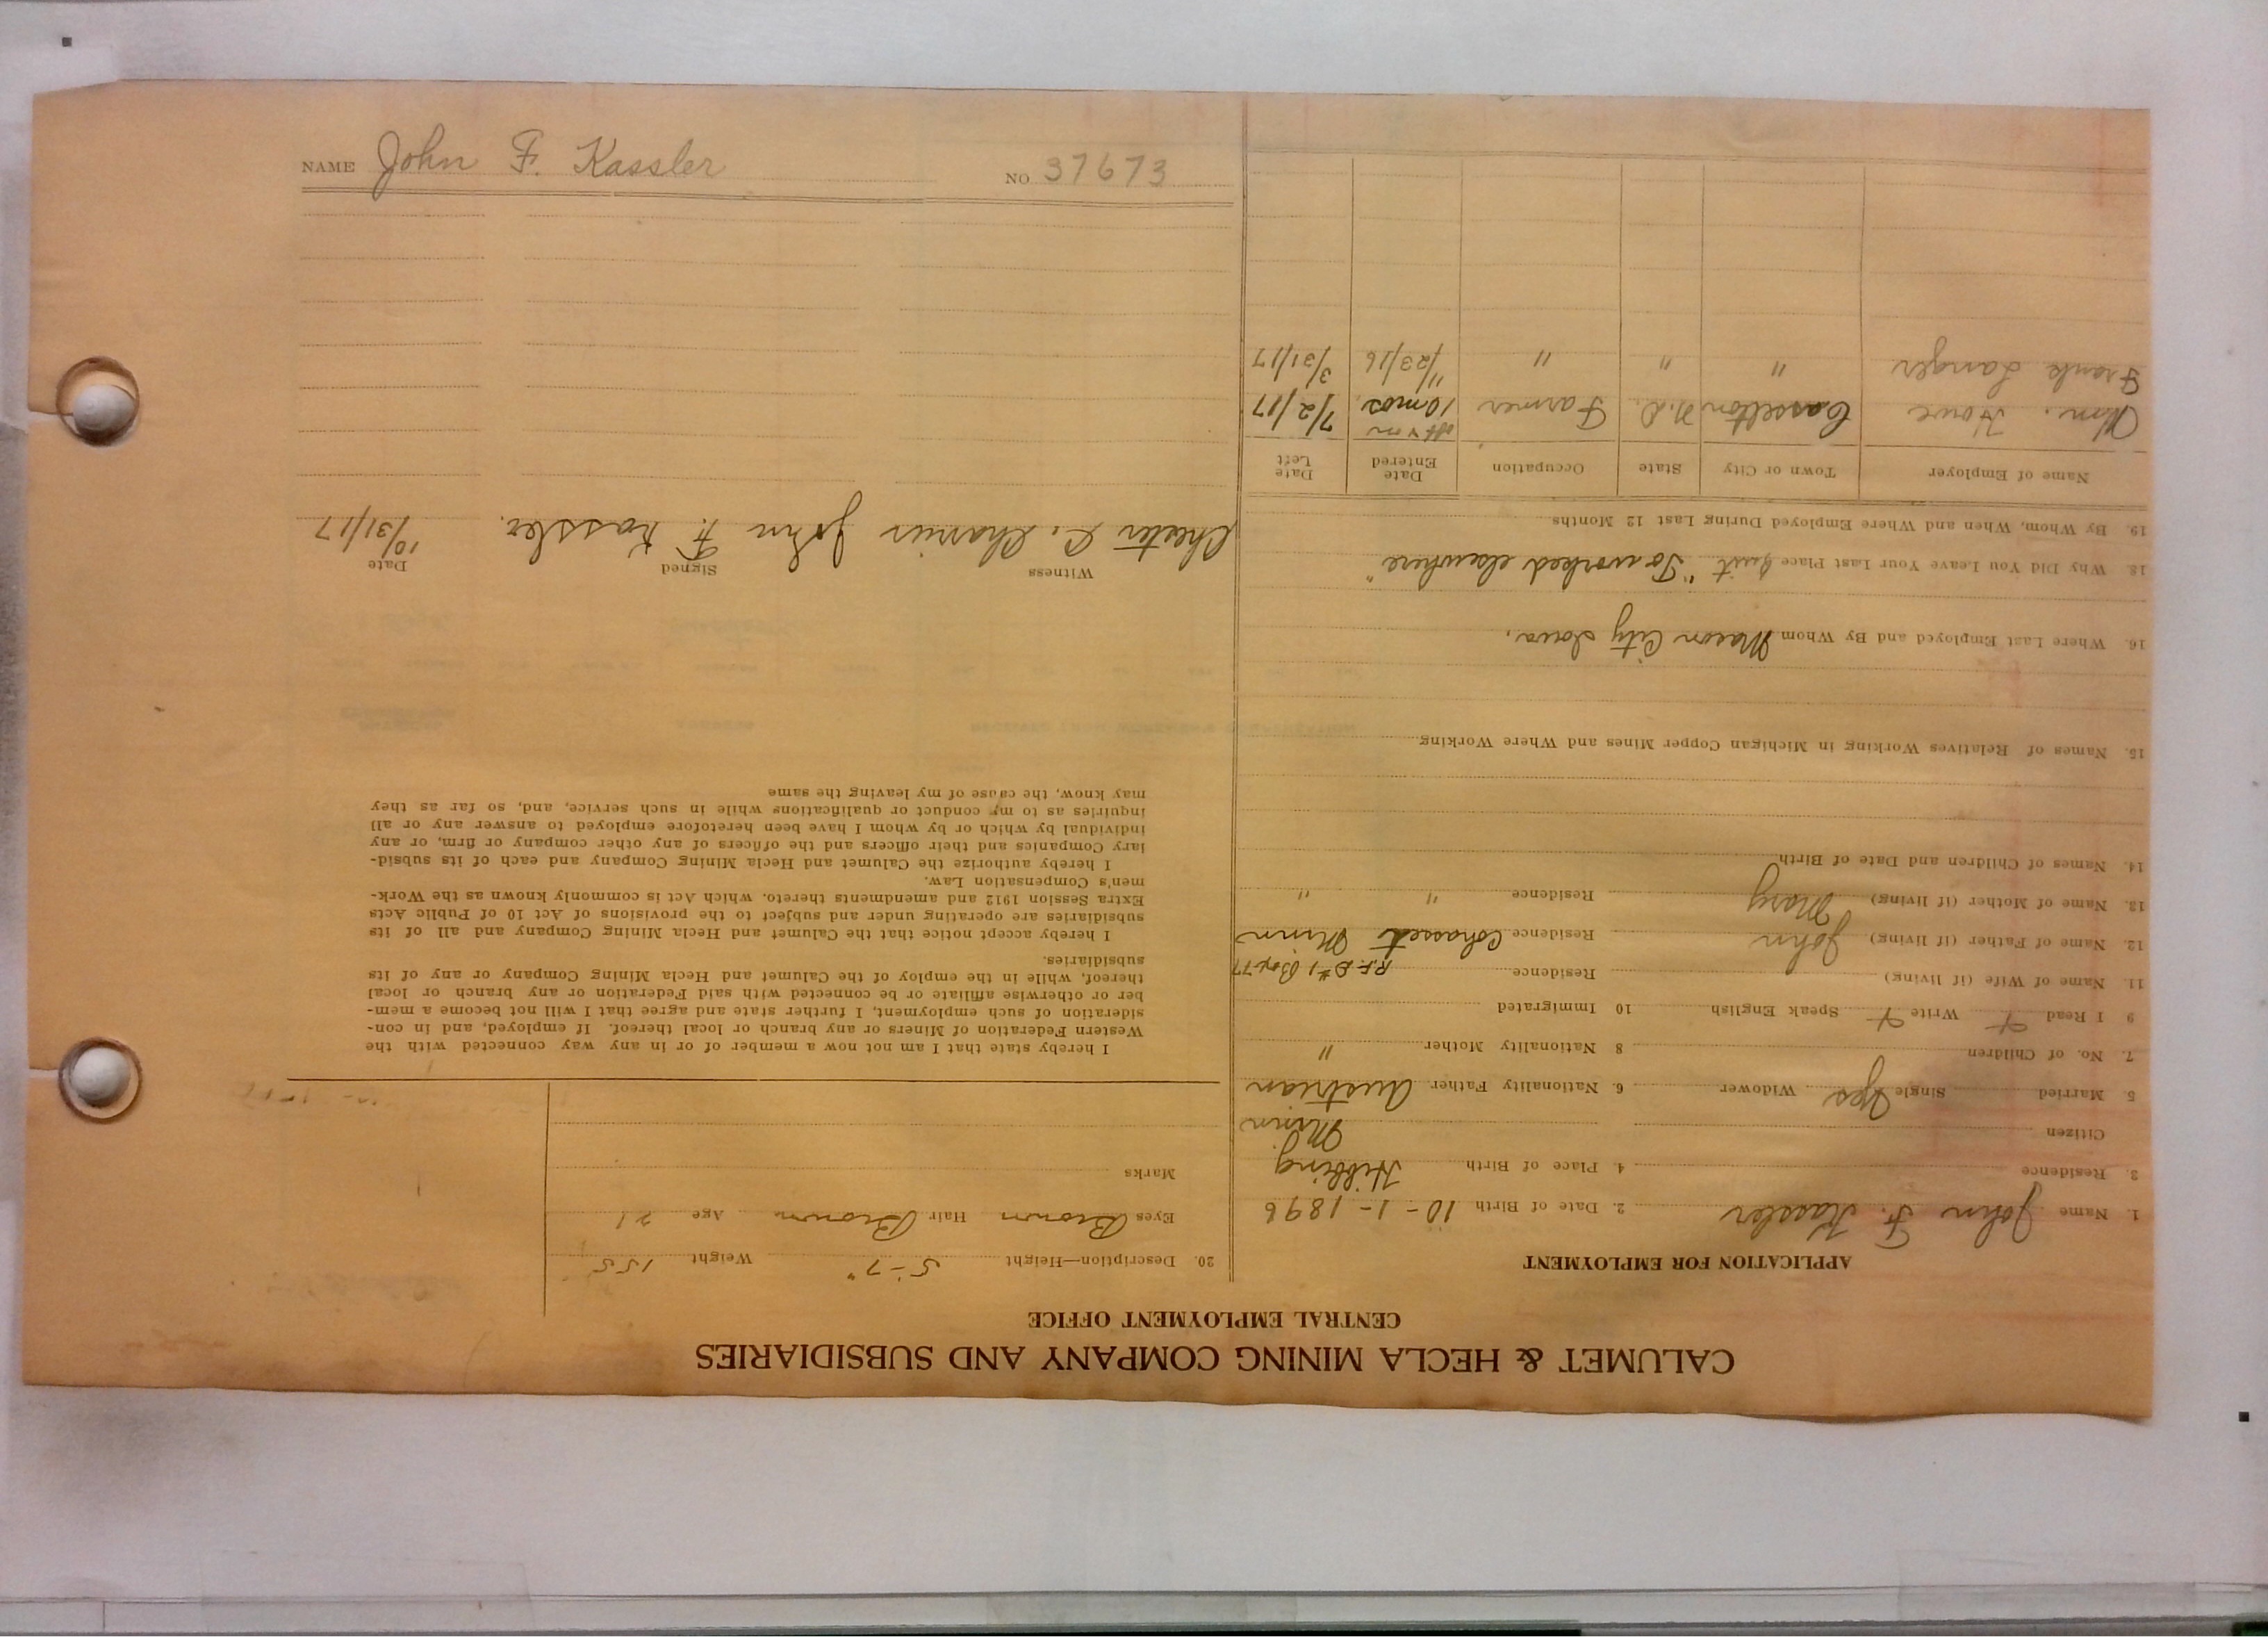 CALUMET & HECLA MINING COMPANY AND SUBSIDIARIES
CENTRAL EMPLOYMENT OFFICE
APPLICATION FOR EMPLOYMENT
1. Name John F. Kassler 2. Date of Birth 10-1-1896
3. Residence 4. Place of Birth Hibbing
Citizen Minn
5 Married Single Yes Widower 6. Nationality Father Austrian
7. No. of Children 8 Nationality Mother "
9 I Read + Write + Speak English 10 Immigrated
11. Name of Wife (if living) Residence R.F.D #1 Box 77
12. Name of Father (if living) John Residence Cohasset Minn
13. Name of Mother (if living) Mary Residence " "
14. Names of Children and Date of Birth
15. Names of Relatives Working in Michigan Copper Mines and Where Working
16. Where Last Employed and By Whom Mason City Iowa.
18. Why Did You Leave Your Last Place Quit "To worked elsewhere"
19. By Whom, When and Where Employed During Last 12 Months
Name of Employer Town or City State Occupation Date Entered Date Left
Wm. Howe Casselton N.D. Farmer off & on 10 mos. 7/2/17
Frank Langer " " " 11/23/16 3/31/17
20. Description—Height 5-7" Weight 155
Eyes Brown Hair Brown Age 21
Marks
I hereby state that I am not now a member of or in any way connected with the
Western Federation of Miners or any branch or local thereof. If employed, and in con-
sideration of such employment, I further state and agree that I will not become a mem-
ber or otherwise affiliate or be connected with said Federation or any branch or local
thereof, while in the employ of the Calumet and Hecla Mining Company or any of its
subsidiaries.
I hereby accept notice that the Calumet and Hecla Mining Company and all of its
subsidiaries are operating under and subject to the provisions of Act 10 of Public Acts
Extra Session 1912 and amendments thereto, which Act is commonly known as the Work-
men's Compensation Law.
I hereby authorize the Calumet and Hecla Mining Company and each of its subsid-
iary Companies and their officers and the officers of any other company or firm, or any
individual by which or by whom I have been heretofore employed to answer any or all
inquiries as to my conduct or qualifications while in such service, and, so far as they
may know, the cause of my leaving the same
Witness Signed Date
Chester C. Charrier John F. Kassler. 10/31/17
NAME John F. Kassler NO. 37673